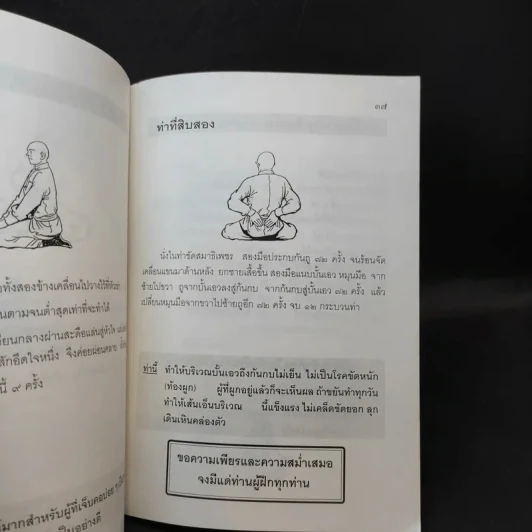 ทั้งสองข้างเคลื่อนไปวางไว้ที่หัวเข่า
นตามจนต่ำสุดเท่าที่จะทำได้
ยนกลางผ่านสะดือแล่นสู่หัวใจ
ลักอึดใจหนึ่ง จึงค่อยผ่อนคลาย
นี้ ๙ ครั้ง
มากสำหรับผู้ที่เจ็บคอบ่อย
เป็นอย่างดี
๓๗
ท่าที่สิบสอง
นั่งในท่าขัดสมาธิเพชร สองมือประกบกันถู ๗๒ ครั้ง จนร้อนจัด
เคลื่อนแขนมาด้านหลัง ยกชายเสื้อขึ้น สองมือแนบบั้นเอว หมุนมือ จาก
ซ้ายไปขวา ถูจากบั้นเอวลงสู่ก้นกบ จากก้นกบสู่บั้นเอว ๗๒ ครั้ง แล้ว
เปลี่ยนหมุนมือจากขวาไปซ้ายถูอีก ๗๒ ครั้ง จบ ๑๒ กระบวนท่า
ท่านี้ ทำให้บริเวณบั้นเอวถึงก้นกบไม่เย็น ไม่เป็นโรคขัดหนัก
(ท้องผูก) ผู้ที่ผูกอยู่แล้วก็จะเห็นผล ถ้าขยันทำทุกวัน
ทำให้เส้นเอ็นบริเวณ นี้แข็งแรง ไม่เคล็ดขัดยอก ลุก
เดินเหินคล่องตัว
ขอความเพียรและความสม่ำเสมอ
จงมีแด่ท่านผู้ฝึกทุกท่าน